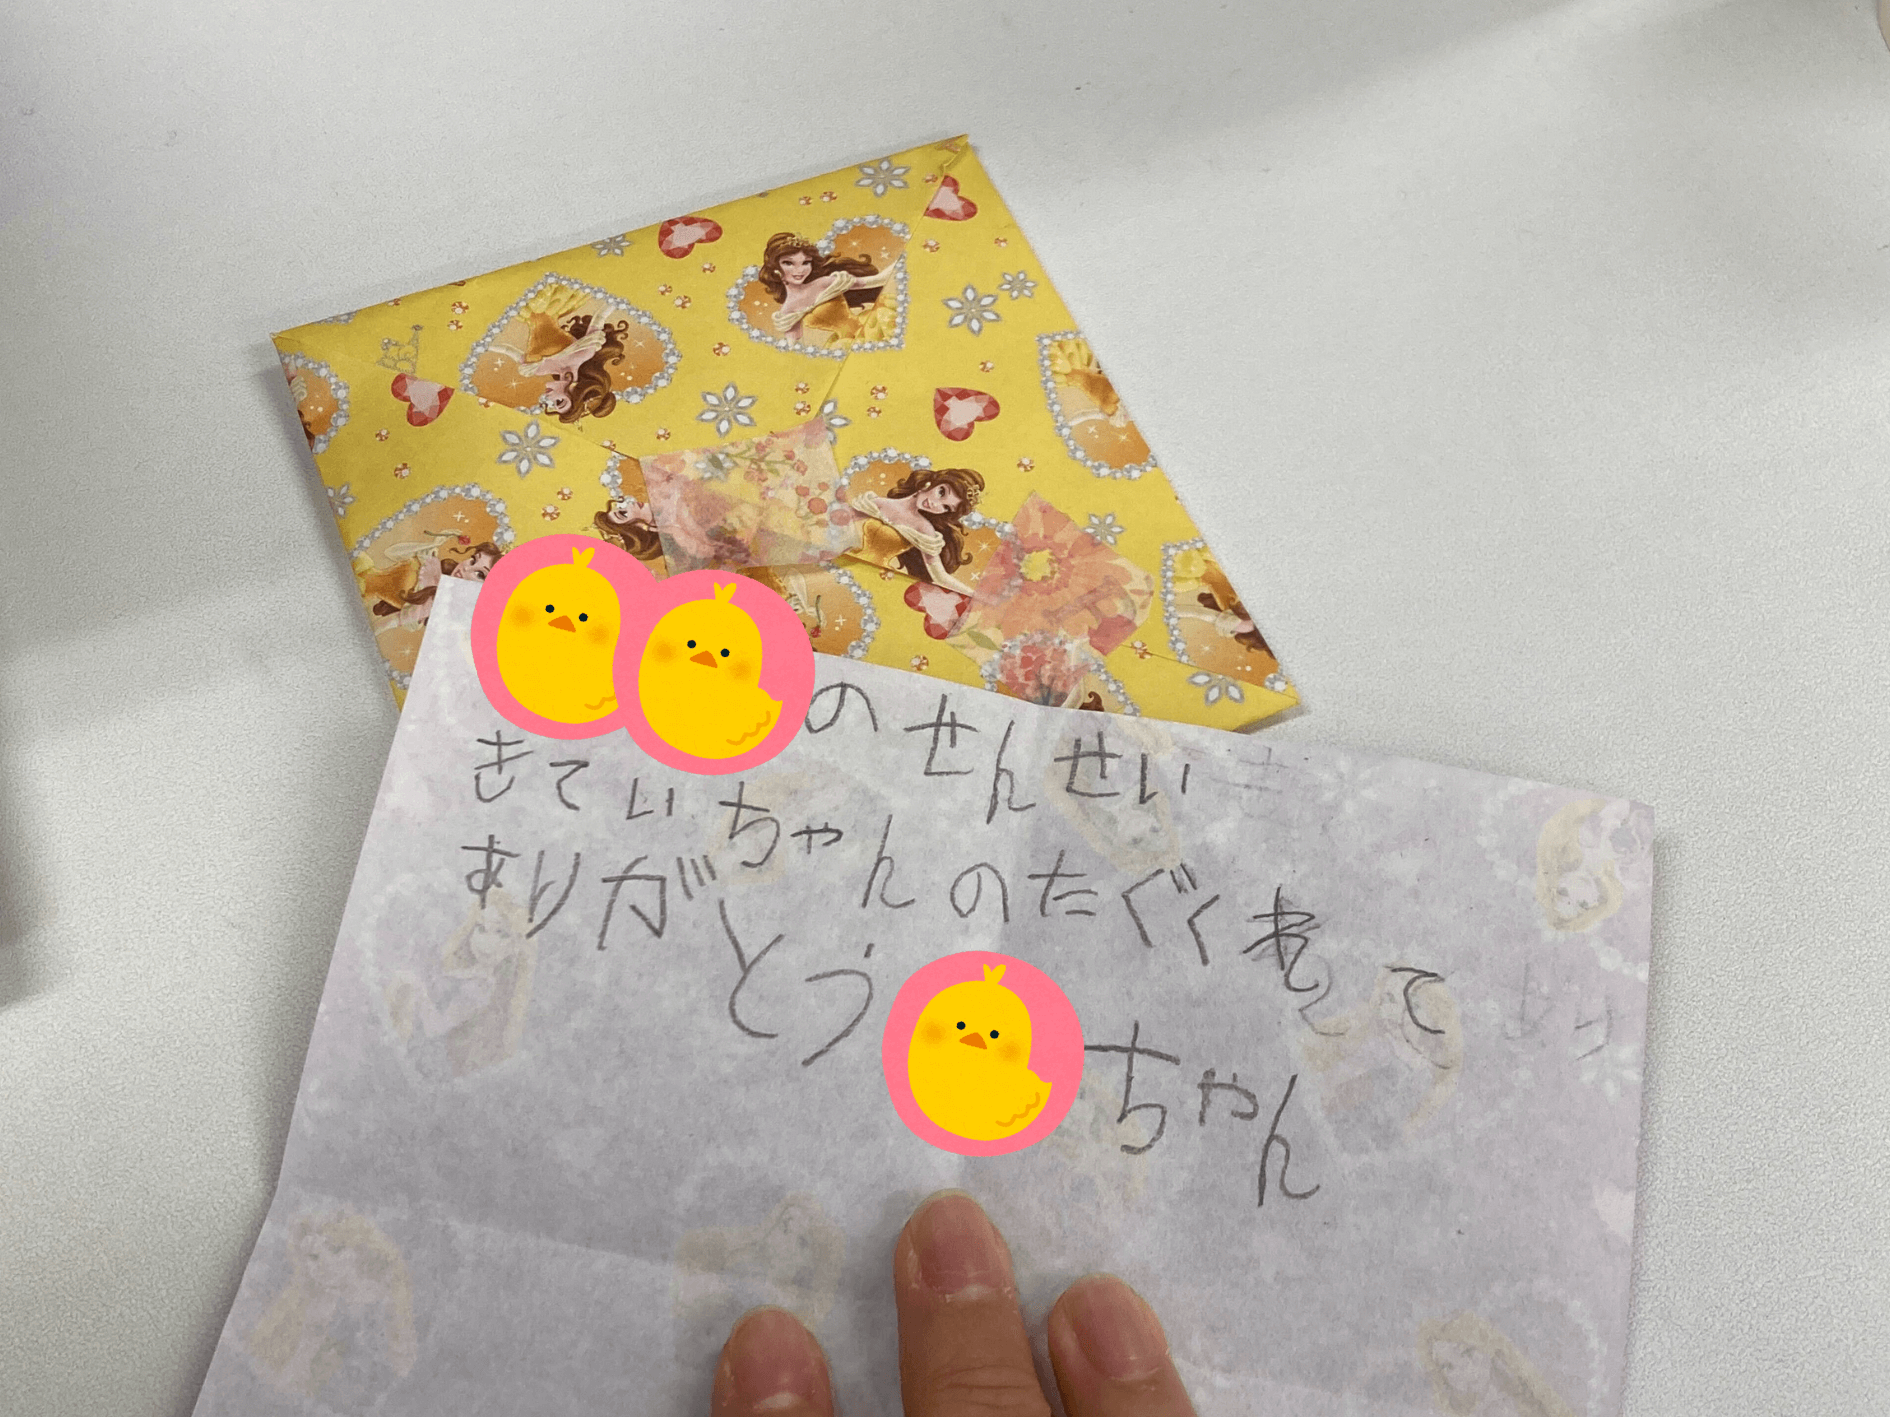 のせんせい
きてぃちゃんのたぐくれて
ありがとう
ちゃん